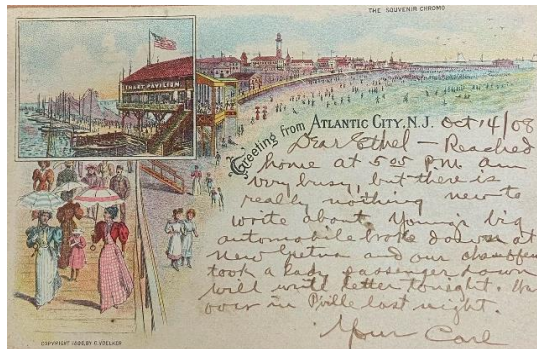 THE SOUVENIR CHROMO
INLET PAVILION
Greeting from ATLANTIC CITY, N.J. Oct 14/08
Dear Ethel - Reached
home at 5 05 P.M. am
very busy, but there is
really nothing new to
write about. Young's big
automobile broke down at
New Gretna and our chauffeur
took a lady passenger down
will write letter tonight. Was
over in P'ville last night.
Your Carl
COPYRIGHT BY C. VOELKER